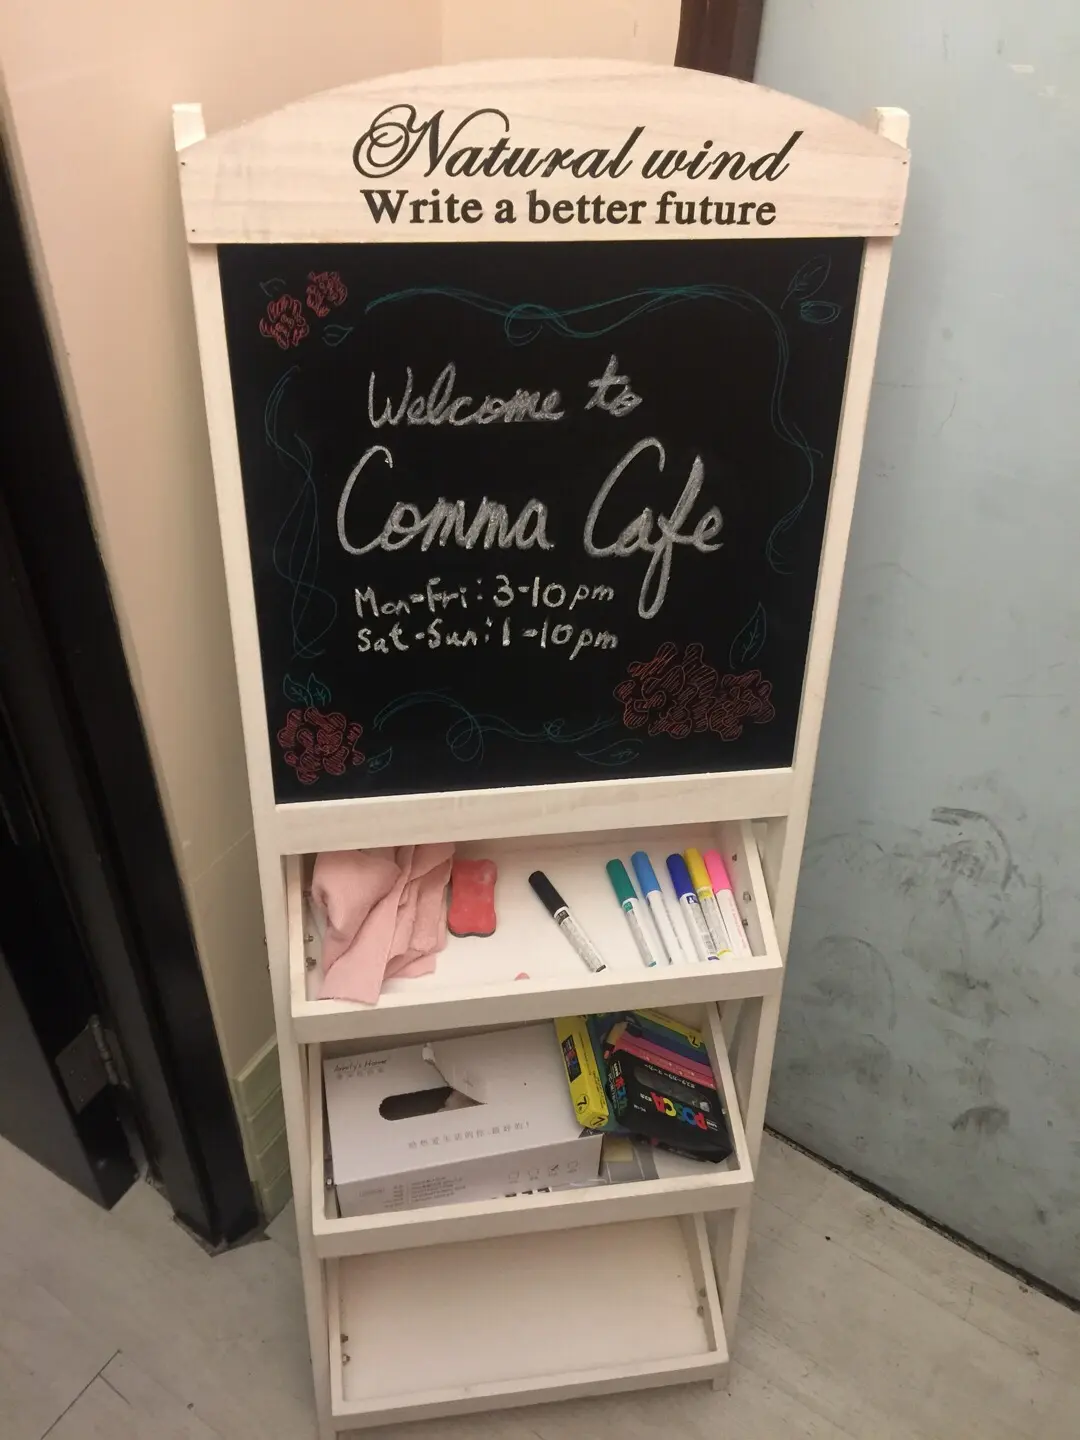 Natural wind
Write a better future
Welcome to
Comma Cafe
Mon-Fri: 3-10pm
Sat-Sun: 1-10pm
POSCA